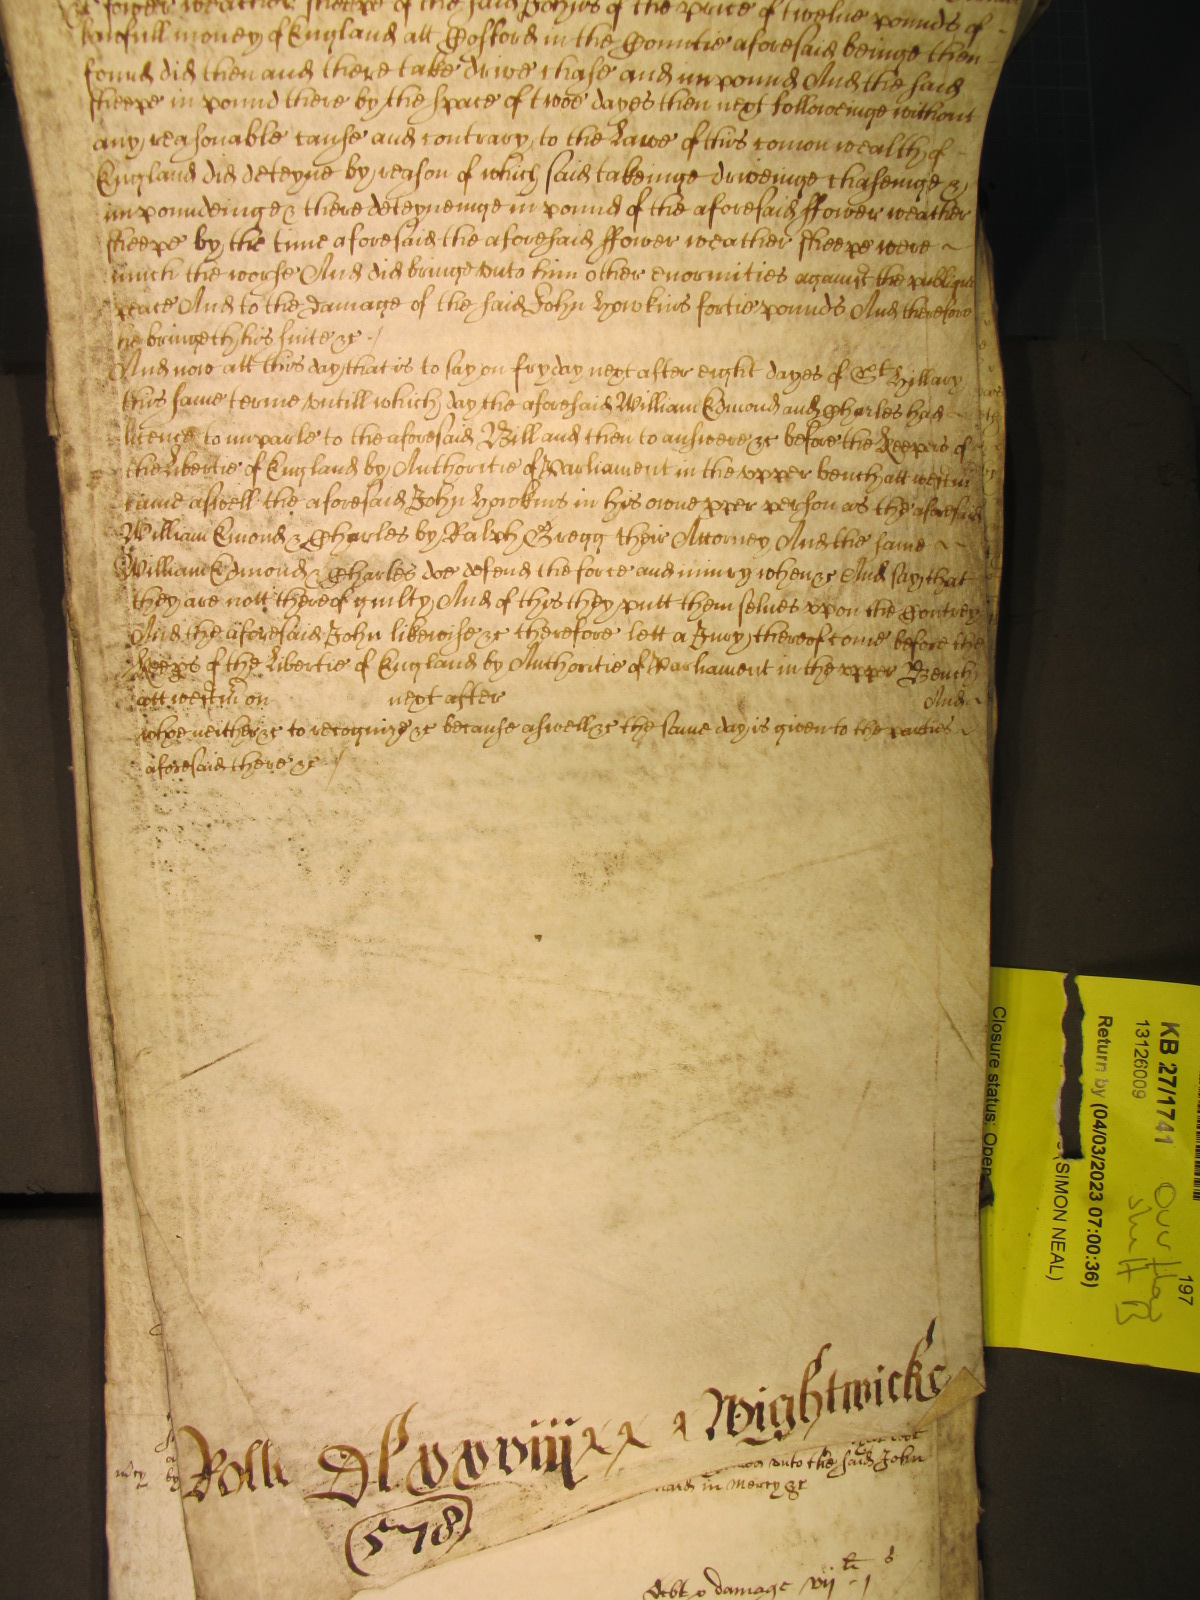 fower weather sheepe of the said Johns of the price of twelve pounds of
lawfull money of England att Gosford in the Countie aforesaid beinge then
found did then and there take drive chase and impound And the said
sheepe in pound there by the space of twoe dayes then next followeinge without
any reasonable cause and contrary to the Lawe of this comon wealth of
England did deteyne by reason of which said takeinge driveinge chaseinge &
impoundeinge & there deteyneinge in pound of the aforesaid ffower weather
sheepe by the time aforesaid the aforesaid ffower weather sheepe were
much the worse And did bringe unto him other enormities against the publique
peace And to the damage of the said John Howkins fortie pounds And therefore
he bringeth his suite &c
And now att this day that is to say on fryday next after eight dayes of St Hillary
this same terme untill which day the aforesaid William Edmond and Charles had
licence to imparle to the aforesaid Bill and then to answere &c before the Keepers of
the Libertie of England by Authoritie of Parliament in the upper bench att westm
came aswell the aforesaid John Howkins in his owne pper person as the aforesaid
William Emond & Charles by Ralph Gregg their Attorney And the same
William Edmond & Charles doe defend the force and iniury when &c And say that
they are nott thereof guilty And of this they putt themselves upon the Contrey
And the aforesaid John likewise &c therefore lett a Jury thereof come before the
Keeps of the Libertie of England by Authoritie of Parliament in the upper Bench
att westm on next after And
whoe neither &c to recognize &c because aswell &c the same day is given to the parties
aforesaid there &c
Rolle Dlxxviij Wightwicke
578
unto the said John
in Mercy &c
debt & damage vij li j s
KB 27/1741
13126009
Return by (04/03/2023 07:00:36)
(SIMON NEAL)
Closure status: Open
197